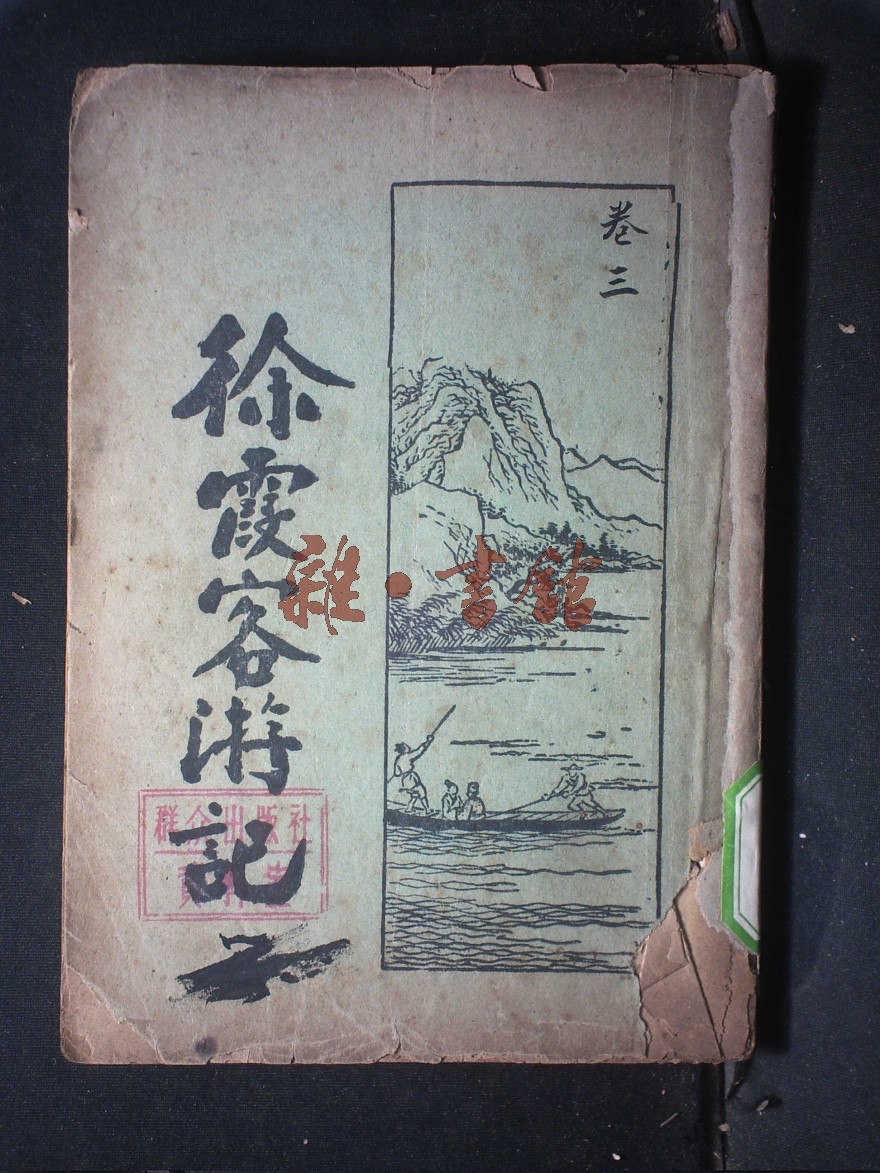 卷三
徐霞客游記
雜·書館
群众出版社